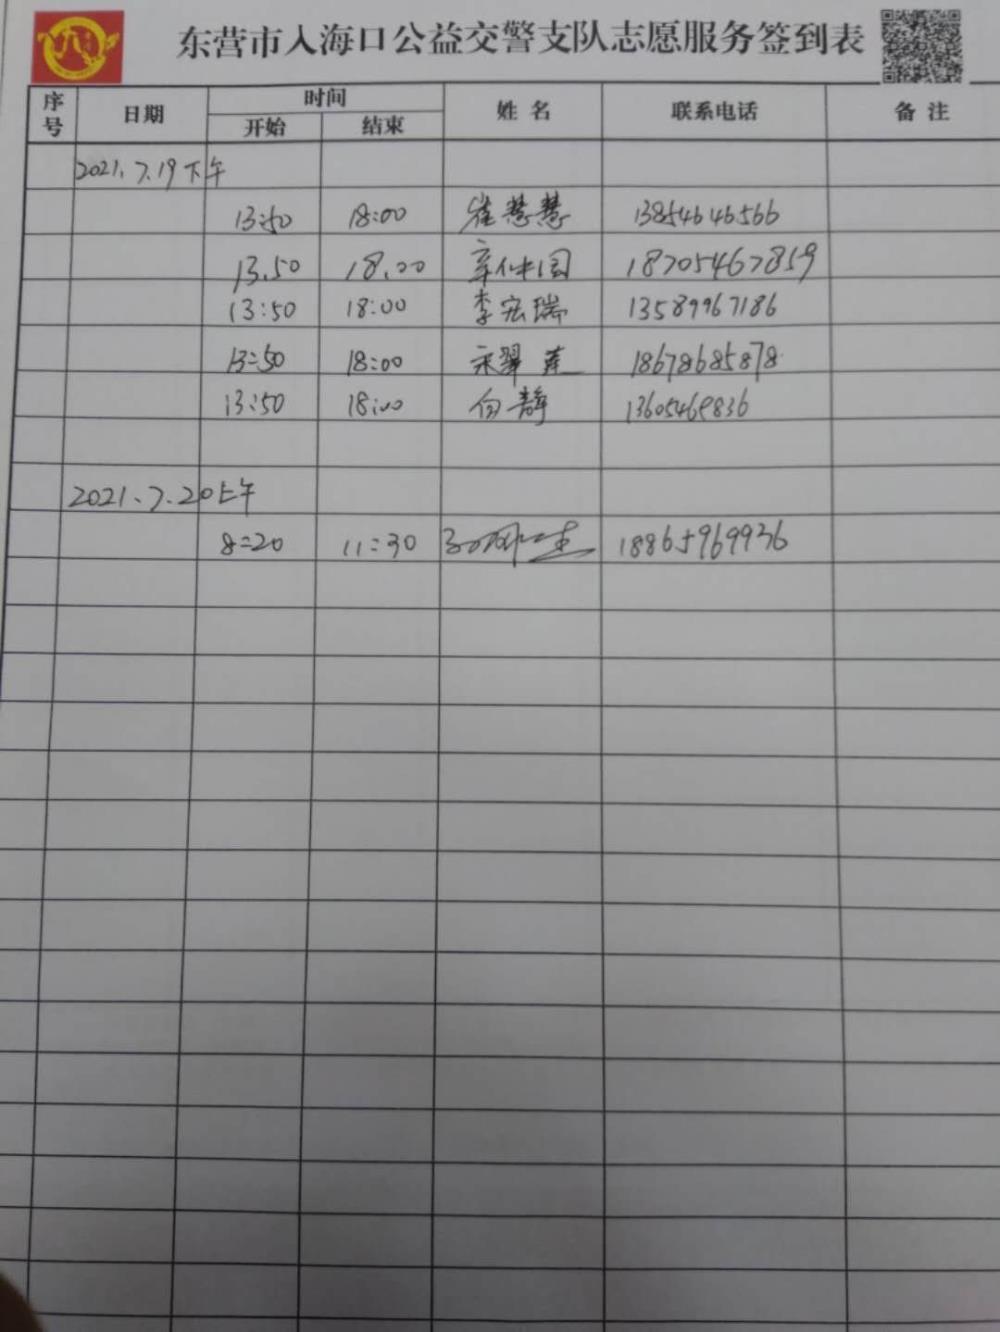 东营市入海口公益交警支队志愿服务签到表
序号 日期 时间 姓名 联系电话 备注
开始 结束
2021.7.19下午
13:50 18:00 崔慧慧 13854646566
13.50 18.00 辛仲国 18705467859
13:50 18:00 李宏瑞 13589967186
13:50 18:00 宋翠莲 18678685878
13:50 18:00 白静 13605469836
2021.7.20上午
8:20 11:30 18865969936